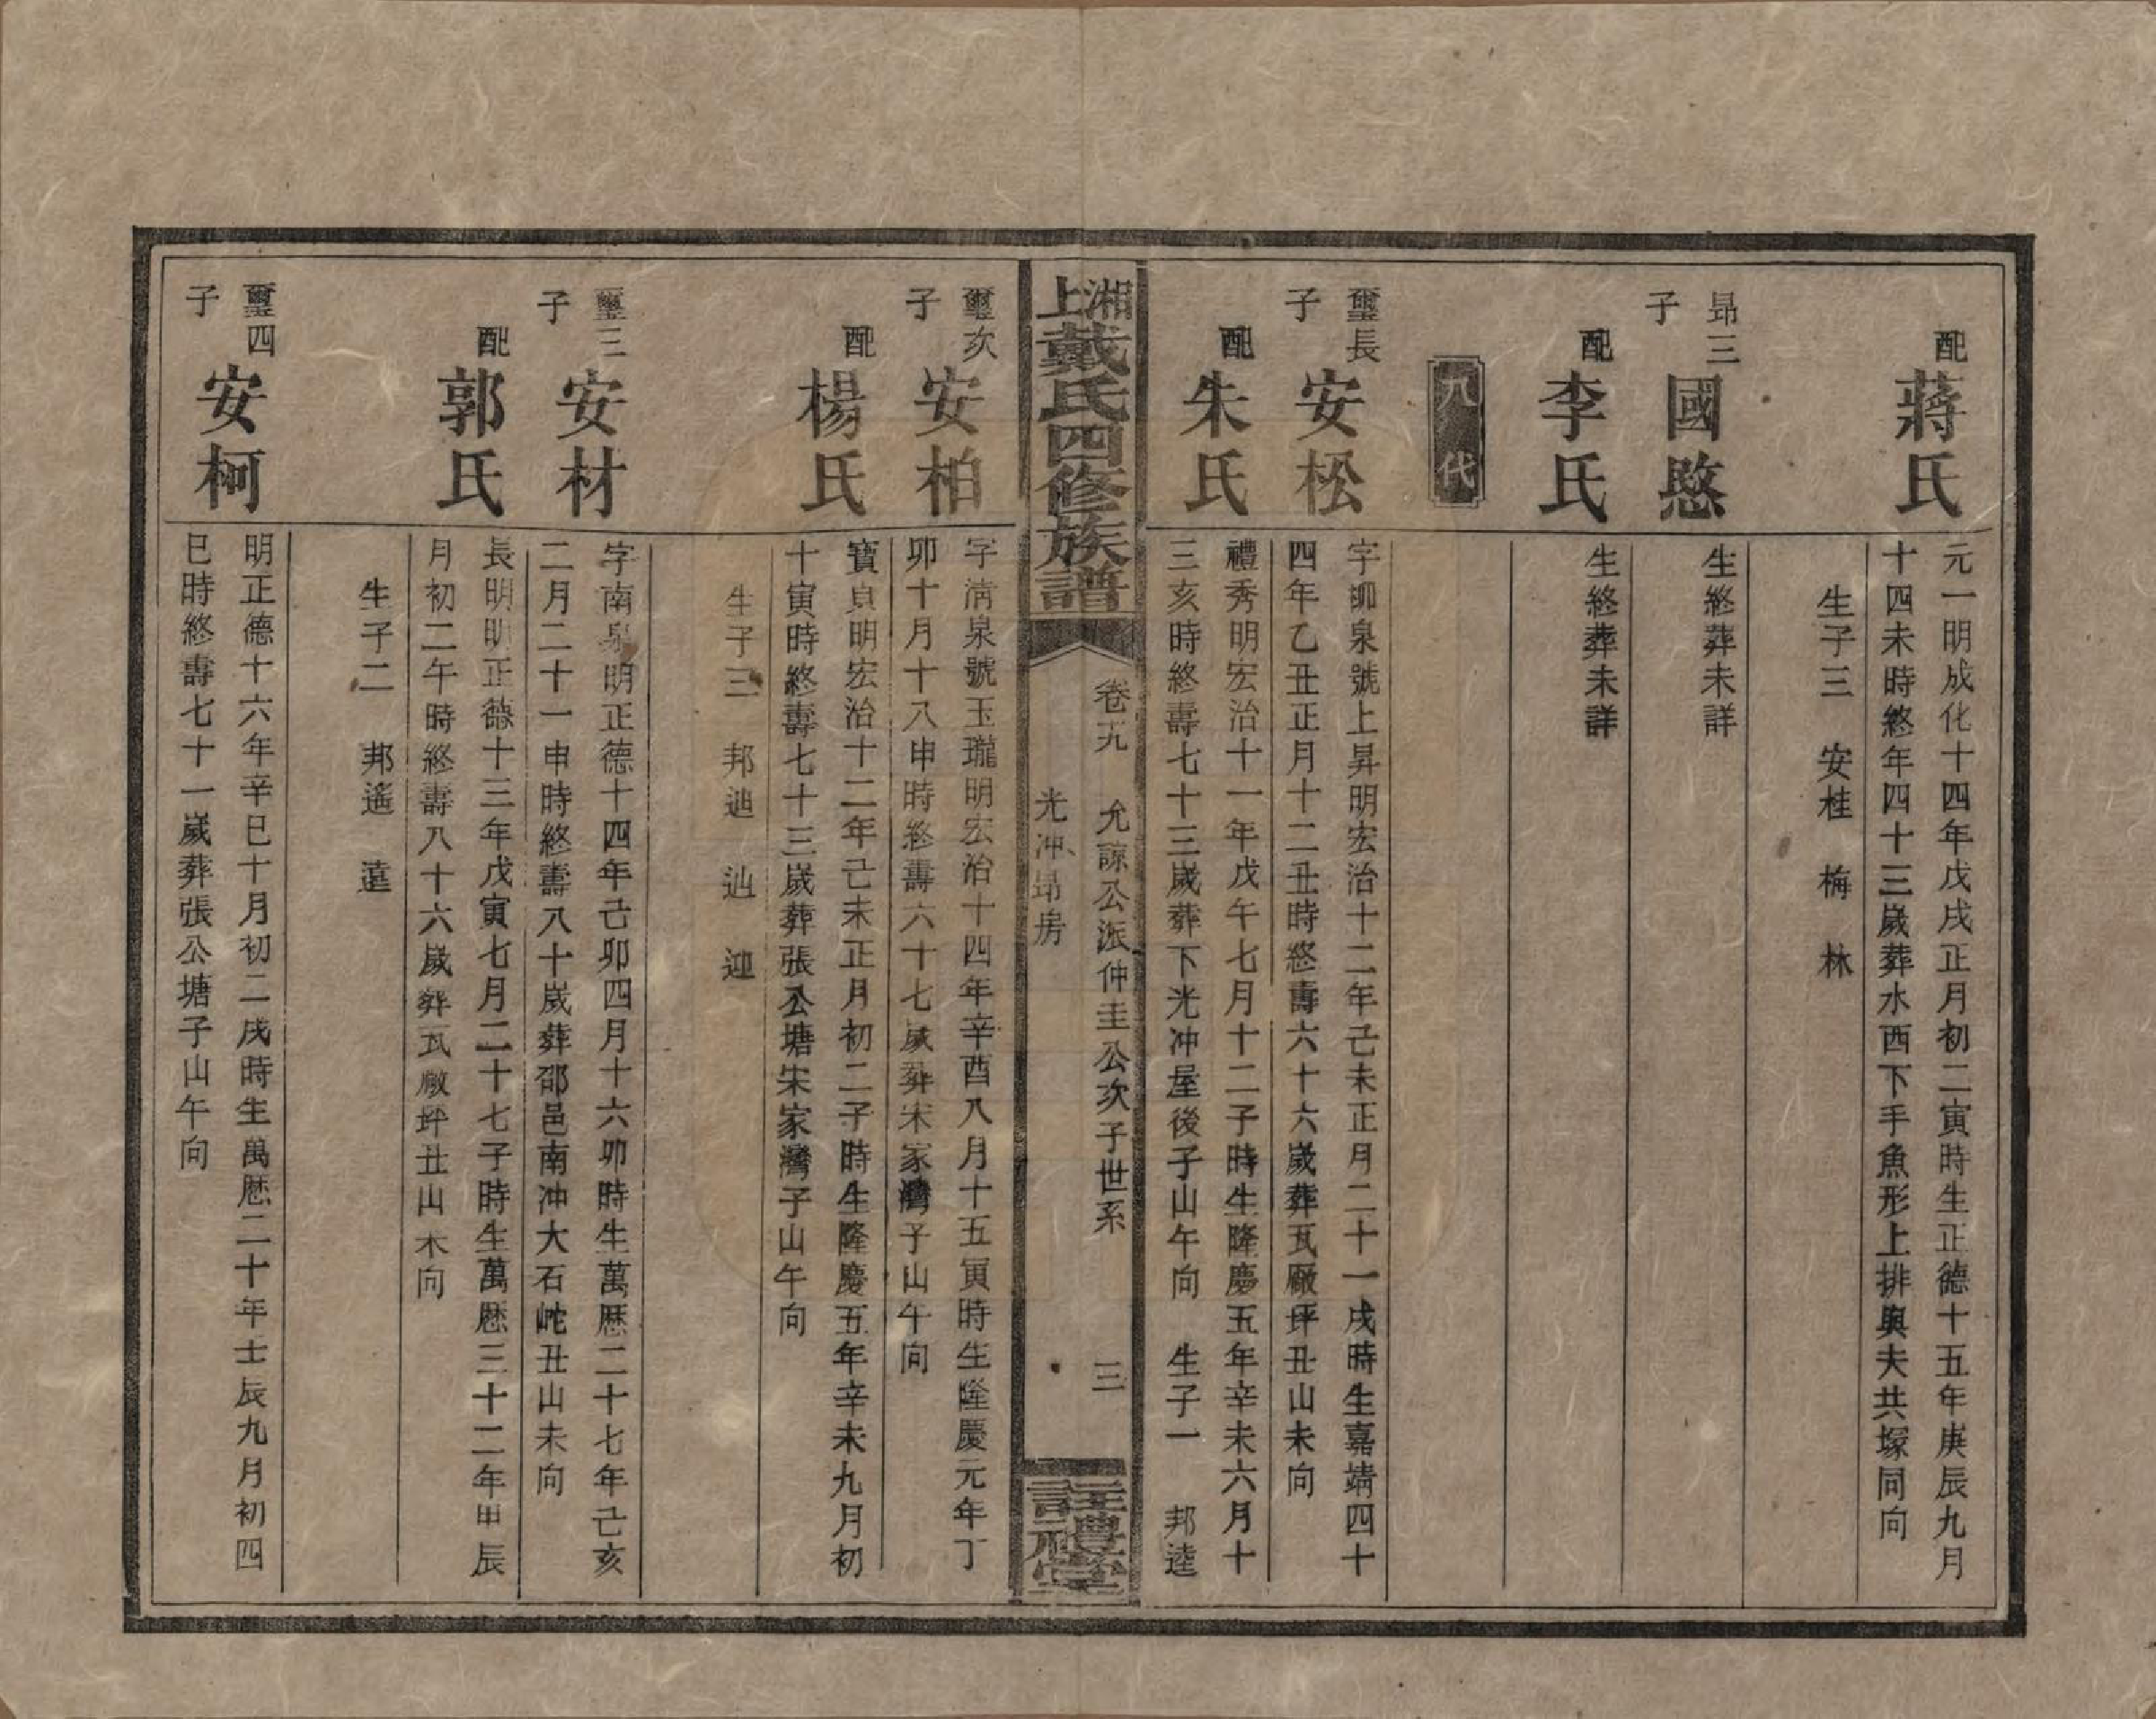 配
蔣氏
元一明成化十四年戊戌正月初二寅時生正德十五年庚辰九月
十四未時終年四十三歲葬水西下手魚形上排與夫共塚同向
生子三 安桂 梅 林
昻三
子
國愍
生終葬未詳
配
李氏
生終葬未詳
九代
璽長
子
安松
字卹泉號上昇明宏治十二年己未正月二十一戌時生嘉靖四十
四年乙丑正月十二丑時終壽六十六歲葬瓦廠坪丑山未向
配
朱氏
禮秀明宏治十一年戊午七月十二子時生隆慶五年辛未六月十
三亥時終壽七十三歲葬下光冲屋後子山午向 生子一 邦逵
湘上戴氏四修族譜
卷五九 允諒公派仲圭公次子世系 三
光冲昻房
註禮堂
璽次
子
安柏
字清泉號玉瓏明宏治十四年辛酉八月十五寅時生隆慶元年丁
卯十月十八申時終壽六十七歲葬宋家灣子山午向
配
楊氏
寶貞明宏治十二年己未正月初二子時生隆慶五年辛未九月初
十寅時終壽七十三歲葬張公塘宋家灣子山午向
生子三 邦迪 辿 迎
璽三
子
安材
字南泉明正德十四年己卯四月十六卯時生萬歷二十七年己亥
二月二十一申時終壽八十歲葬邵邑南冲大石岮丑山未向
配
郭氏
長明明正德十三年戊寅七月二十七子時生萬歷三十二年甲辰
月初二午時終壽八十六歲葬瓦廠坪丑山未向
生子二 邦遙 遠
璽四
子
安柯
明正德十六年辛巳十月初二戌時生萬歷二十年壬辰九月初四
巳時終壽七十一歲葬張公塘子山午向